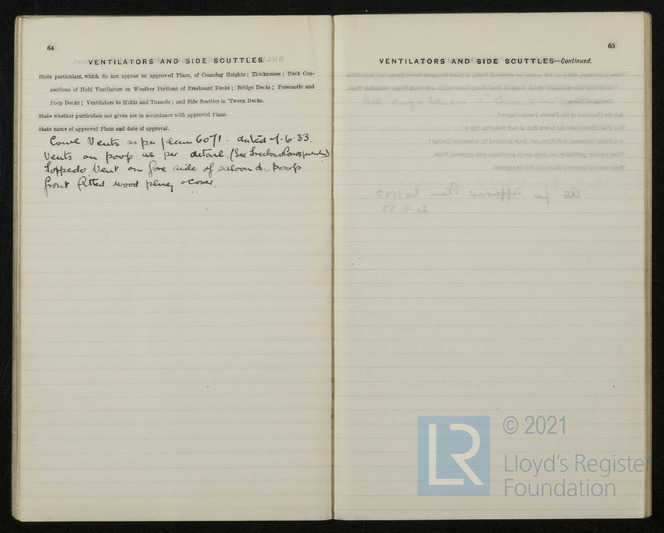 64
VENTILATORS AND SIDE SCUTTLES.
State particulars, which do not appear on approved Plans, of Coaming Heights; Thicknesses; Deck Con-
nections of Hold Ventilators on Weather Portions of Freeboard Decks; Bridge Decks; Forecastle and
Poop Decks; Ventilators to Holds and Tunnels; and Side Scuttles in 'Tween Decks.
State whether particulars not given are in accordance with approved Plans.
State name of approved Plans and date of approval.
Cowl Vents as per plan 6071. dated 1.6.33.
Vents on poop as per detail (See Freeboard
Torpedo Vent on fore side of saloon & poop
front fitted wood plug & cover.
65
VENTILATORS AND SIDE SCUTTLES—Continued.
LR
© 2021
Lloyd's Register
Foundation